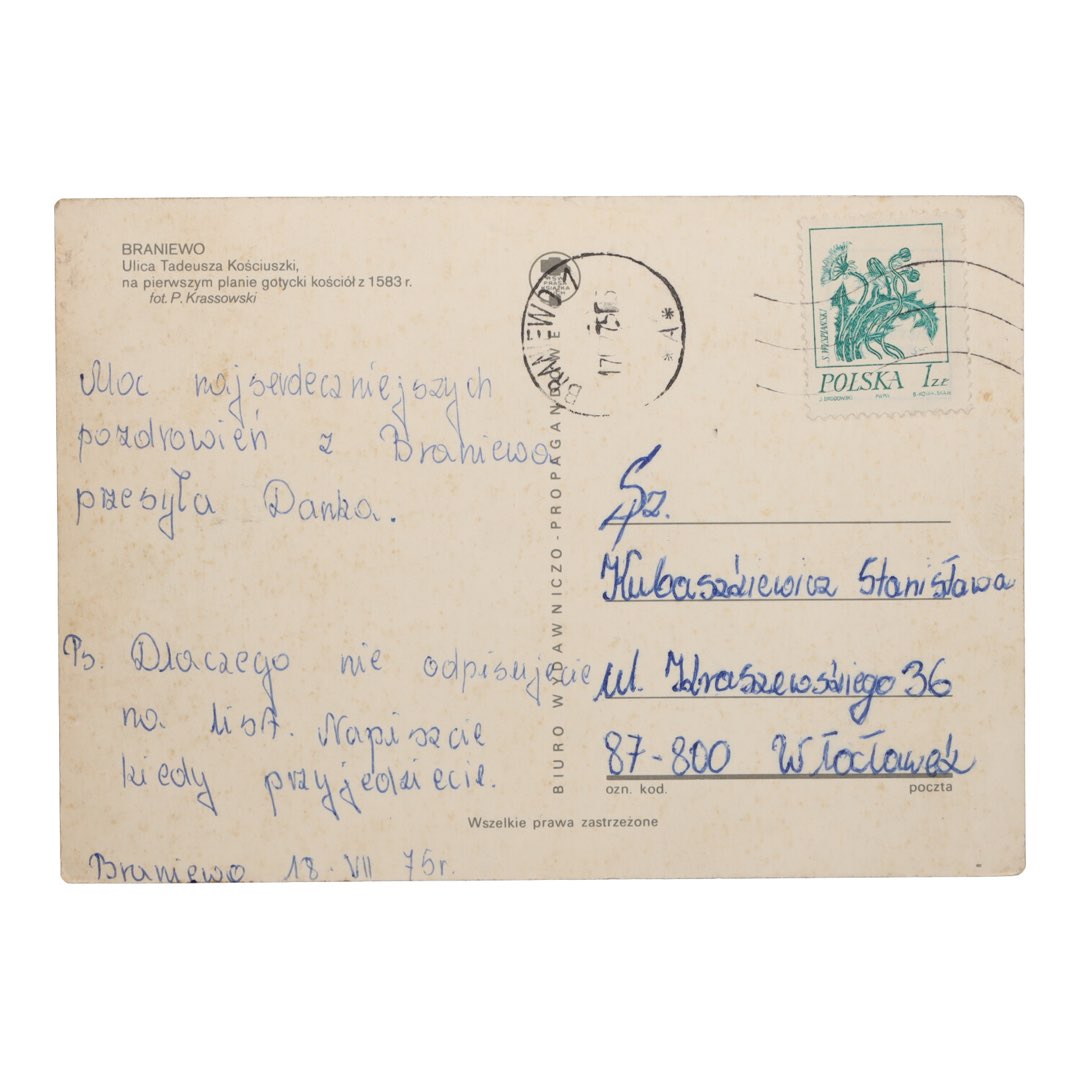 BRANIEWO
Ulica Tadeusza Kościuszki,
na pierwszym planie gotycki kościół z 1583 r.
fot. P. Krassowski
Moc najserdeczniejszych
pozdrowień z Braniewa
przesyła Danka.
Ps. Dlaczego nie odpisujecie
na list. Napiszcie
kiedy przyjedziecie.
Braniewo 18 VII 75r.
BIURO WYDAWNICZO-PROPAGANDOWE
BRANIEWO
*A*
S. WYSPIAŃSKI
POLSKA 1 ZŁ
Sz.
Kubaszkiewicz Stanisława
ul. Kraszewskiego 36
87-800 Włocławek
ozn. kod. poczta
Wszelkie prawa zastrzeżone